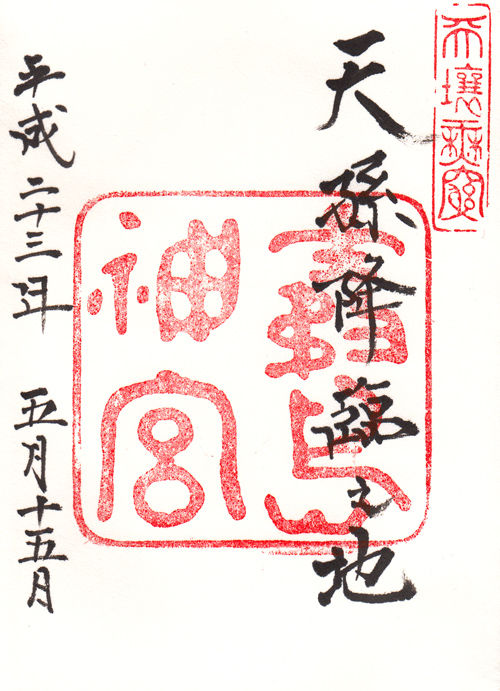 天壌無窮
天孫降臨之地
霧島
神宮
平成二十三年 五月十五日